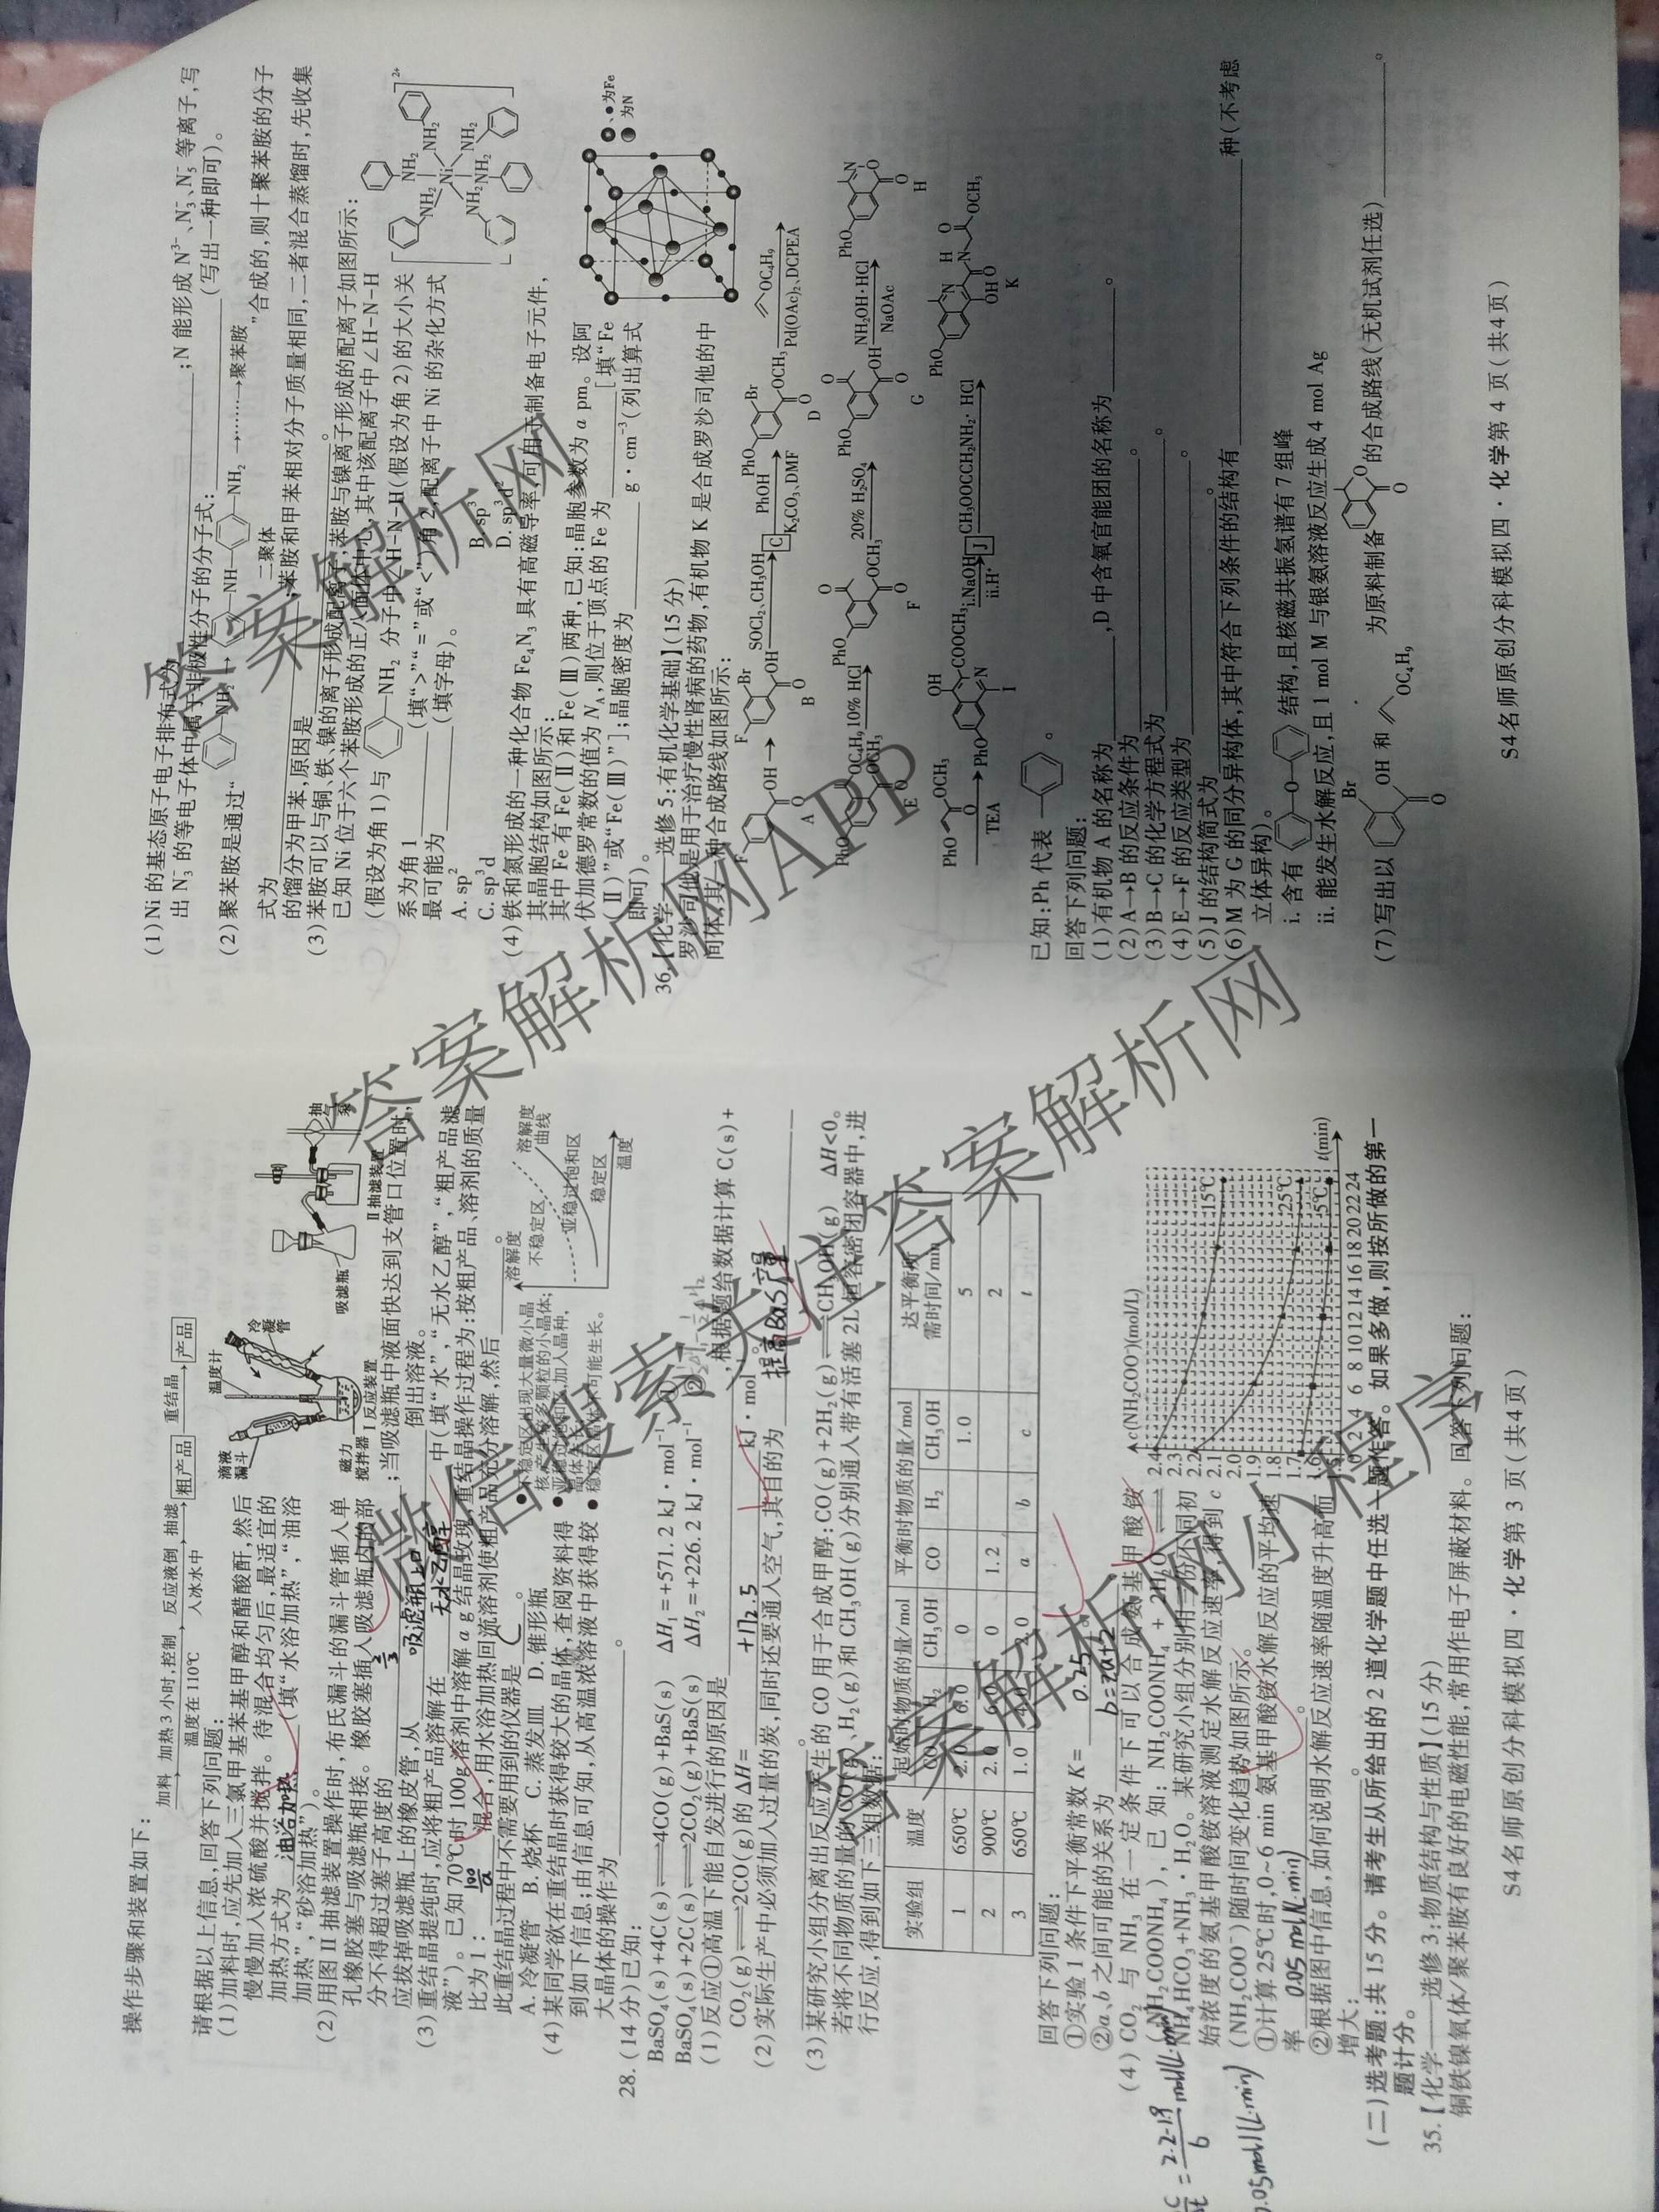 操作步骤和装置如下:
加料 加热3小时,控制温度在110℃ 反应液倒入冰水中 抽滤 粗产品 重结晶 产品
请根据以上信息,回答下列问题:
(1)加料时,应先加入三氯甲基苯基甲醇和醋酸酐,然后
慢慢加入浓硫酸并搅拌。待混合均匀后,最适宜的
加热方式为 油浴加热 (填“水浴加热”,“油浴
加热”,“砂浴加热”)。
滴液漏斗
温度计
冷凝管
磁力搅拌器
Ⅰ反应装置
吸滤瓶
Ⅱ抽滤装置
(2)用图Ⅱ抽滤装置操作时,布氏漏斗的漏斗管插入单
孔橡胶塞与吸滤瓶相接。橡胶塞插入吸滤瓶内的部
分不得超过塞子高度的 2/3 ;当吸滤瓶中液面快达到支管口位置时,
应拔掉吸滤瓶上的橡皮管,从 吸滤瓶上口 倒出溶液。
(3)重结晶提纯时,应将粗产品溶解在 无水乙醇 中(填“水”,“无水乙醇”,“粗产品滤
液”)。已知70℃时100g溶剂中溶解a g结晶玫瑰,重结晶操作过程为:按粗产品、溶剂的质量
比为1: 100/a 混合,用水浴加热回流溶剂使粗产品充分溶解,然后
此重结晶过程中不需要用到的仪器是 C 。
A.冷凝管 B.烧杯 C.蒸发皿 D.锥形瓶
(4)某同学欲在重结晶时获得较大的晶体,查阅资料得
到如下信息;由信息可知,从高温浓溶液中获得较
大晶体的操作为 。
溶解度
不稳定区
亚稳过饱和区
稳定区
溶解度曲线
温度
28.(14分)已知:
BaSO₄(s)+4C(s)⇌4CO(g)+BaS(s) ΔH₁=+571.2 kJ·mol⁻¹ ①
BaSO₄(s)+2C(s)⇌2CO₂(g)+BaS(s) ΔH₂=+226.2 kJ·mol⁻¹ ②
(1)反应①高温下能自发进行的原因是 ,根据题给数据计算C(s)+
CO₂(g)⇌2CO(g)的ΔH= +172.5 kJ·mol⁻¹。
(2)实际生产中必须加入过量的炭,同时还要通入空气,其目的为 提高BaS产量
(3)某研究小组分离出反应产生的CO用于合成甲醇:CO(g)+2H₂(g)⇌CH₃OH(g) ΔH<0。
若将不同物质的量的CO(g)、H₂(g)和CH₃OH(g)分别通入带有活塞2L恒容密闭容器中,进
行反应,得到如下三组数据:
实验组 温度 起始时物质的量/mol 平衡时物质的量/mol 达平衡所需时间/min
CO H₂ CH₃OH CO H₂ CH₃OH
1 650℃ 2.0 6.0 0 1.0 5
2 900℃ 2.0 6.0 0 1.2 2
3 650℃ 1.0 a b c t
回答下列问题:
①实验1条件下平衡常数K= 0.25 。
②a、b之间可能的关系为 b=2a+2 。
(4)CO₂与NH₃在一定条件下可以合成氨基甲酸铵
(NH₂COONH₄),已知:NH₂COONH₄+2H₂O⇌
NH₄HCO₃+NH₃·H₂O。某研究小组分别用三份不同初
始浓度的氨基甲酸铵溶液测定水解反应速率,得到c
(NH₂COO⁻)随时间变化趋势如图所示。
①计算25℃时,0~6 min氨基甲酸铵水解反应的平均速
率 0.05 mol/(L·min) 。
②根据图中信息,如何说明水解反应速率随温度升高而
增大: 。
c(NH₂COO⁻)(mol/L)
2.4
2.3
2.2
2.1
2.0
1.9
1.8
1.7
1.6
15℃
25℃
5℃
0 2 4 6 8 10 12 14 16 18 20 22 24
t(min)
0.05mol/(L·min)
(二)选考题:共15分。请考生从所给出的2道化学题中任选一题作答。如果多做,则按所做的第一
题计分。
35.【化学——选修3:物质结构与性质】(15分)
铜铁镍氧体/聚苯胺有良好的电磁性能,常用作电子屏蔽材料。回答下列问题:
S4名师原创分科模拟四·化学第3页(共4页)
(1)Ni的基态原子电子排布式为 ;N能形成N³⁻、N₃⁻、N₅⁻等离子,写
出N₃⁻的等电子体中属于非极性分子的分子式: (写出一种即可)。
(2)聚苯胺是通过“ NH₂ → NH NH₂ →……→聚苯胺
二聚体
”合成的,则十聚苯胺的分子
式为 ;苯胺和甲苯相对分子质量相同,二者混合蒸馏时,先收集
的馏分为甲苯,原因是 。
(3)苯胺可以与铜、铁、镍的离子形成配离子,苯胺与镍离子形成的配离子如图所示:
已知Ni位于六个苯胺形成的正八面体中心,其中该配离子中∠H-N-H
(假设为角1)与 NH₂ 分子中∠H-N-H(假设为角2)的大小关
系为角1 (填“>”“=”或“<”)角2,配离子中Ni的杂化方式
最可能为 (填字母)。
A.sp² B.sp³
C.sp³d D.sp³d²
(4)铁和氮形成的一种化合物Fe₄N₃具有高磁导率,可用于制备电子元件,
其晶胞结构如图所示:
其中Fe有Fe(Ⅱ)和Fe(Ⅲ)两种,已知:晶胞参数为a pm。设阿
伏加德罗常数的值为N_A,则位于顶点的Fe为 [填“Fe
(Ⅱ)”或“Fe(Ⅲ)”];晶胞密度为 g·cm⁻³(列出算式
即可)。
为Fe
为N
36.【化学——选修5:有机化学基础】(15分)
罗沙司他是用于治疗慢性肾病的药物,有机物K是合成罗沙司他的中
间体,其一种合成路线如图所示:
F OH O A
F Br OH O B
SOCl₂、CH₃OH
C
PhOH
K₂CO₃、DMF
PhO Br OCH₃ O D
OC₄H₉
Pd(OAc)₂、DCPEA
PhO OC₄H₉ OCH₃ O E
10% HCl
PhO O OCH₃ O F
20% H₂SO₄
PhO O OH O G
NH₂OH·HCl
NaOAc
PhO N O O H
PhO OCH₃ O
TEA
OH COOCH₃ PhO N I
i.NaOH
ii.H⁺
J
CH₃OOCCH₂NH₂·HCl
PhO N H N O OCH₃ OH O K
已知:Ph代表 。
回答下列问题:
(1)有机物A的名称为 ,D中含氧官能团的名称为 。
(2)A→B的反应条件为 。
(3)B→C的化学方程式为 。
(4)E→F的反应类型为 。
(5)J的结构简式为 。
(6)M为G的同分异构体,其中符合下列条件的结构有 种(不考虑
立体异构)。
i.含有 O 结构,且核磁共振氢谱有7组峰
ii.能发生水解反应,且1 mol M与银氨溶液反应生成4 mol Ag
(7)写出以 Br OH O 和 OC₄H₉ 为原料制备 O O 的合成路线(无机试剂任选) 。
S4名师原创分科模拟四·化学第4页(共4页)
答案解析网
答案解析网APP
微信搜索关注答案解析网